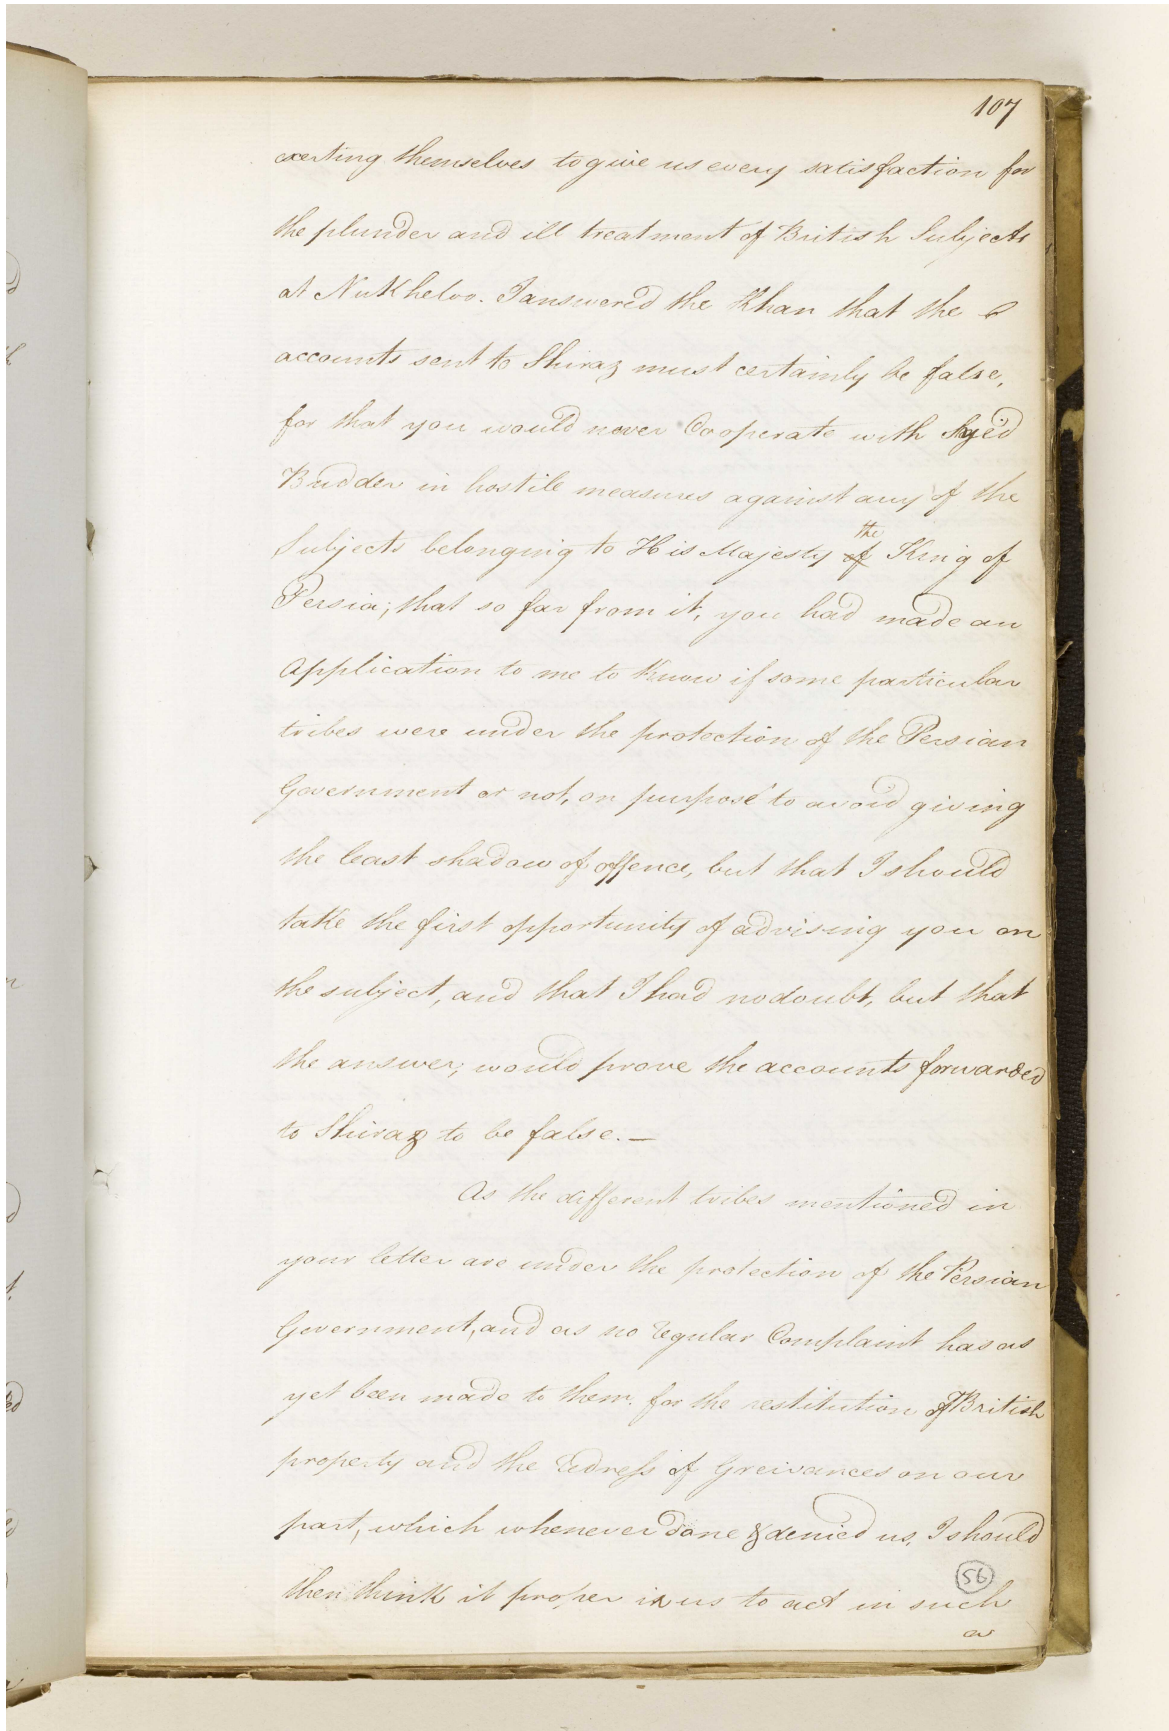 107
exerting themselves to give us every satisfaction for
the plunder and ill treatment of British Subjects
at Nukheloo. I answered the Khan that the
accounts sent to Shiraz must certainly be false,
for that you would never Cooperate with Syed
Budder in hostile measures against any of the
Subjects belonging to His Majesty of the King of
Persia; that so far from it, you had made an
Application to me to Know if some particular
tribes were under the protection of the Persian
Government or not, on purpose to avoid giving
the least shadow of offence, but that I should
take the first opportunity of advising you on
the subject, and that I had no doubt, but that
the answer, would prove the accounts forwarded
to Shiraz to be false. —
As the different tribes mentioned in
your letter are under the protection of the Persian
Government, and as no regular Complaint has as
yet been made to them for the restitution of British
property and the Redress of Greivances on our
part, which whenever done & denied us, I should
then think it proper in us to act in such
56
a